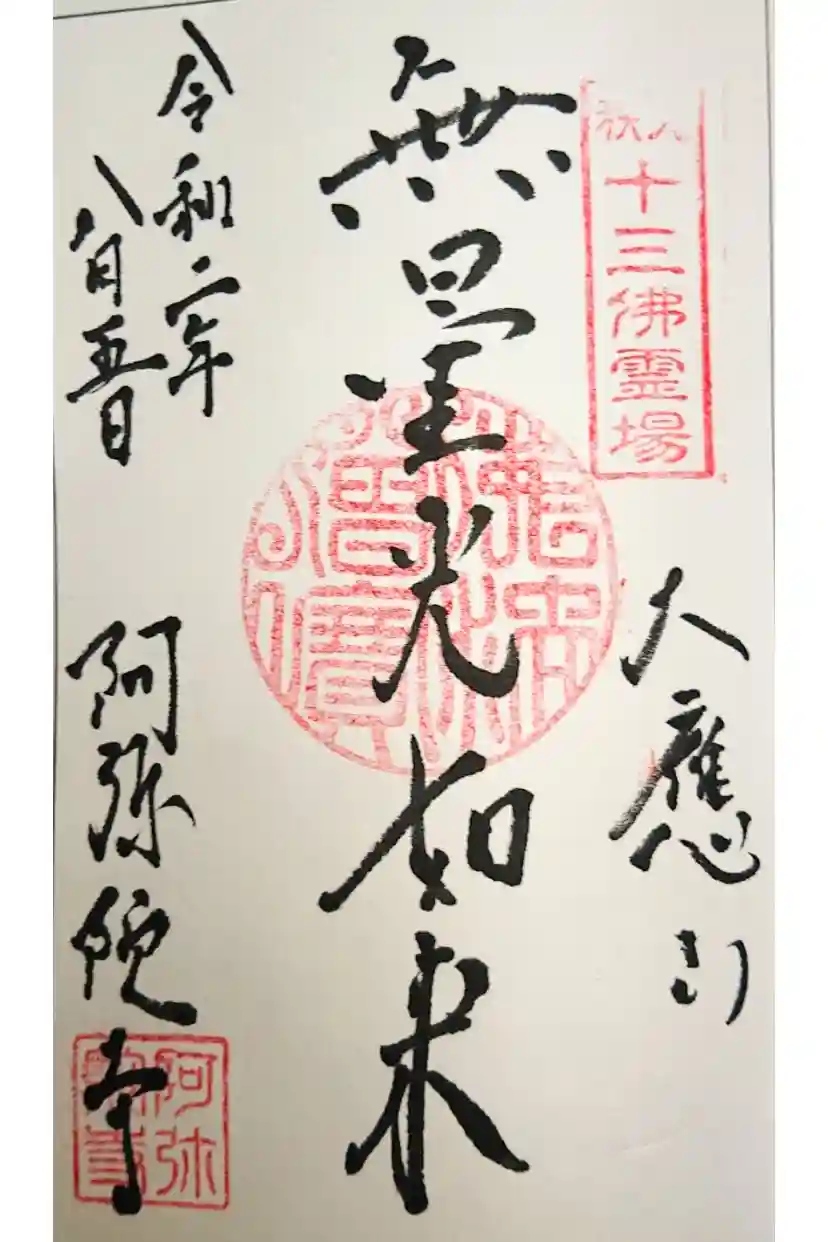 十三佛霊場
大應山
無量光如来
佛法僧寶
令和二年
八月五日
阿弥陀寺
阿弥陀寺